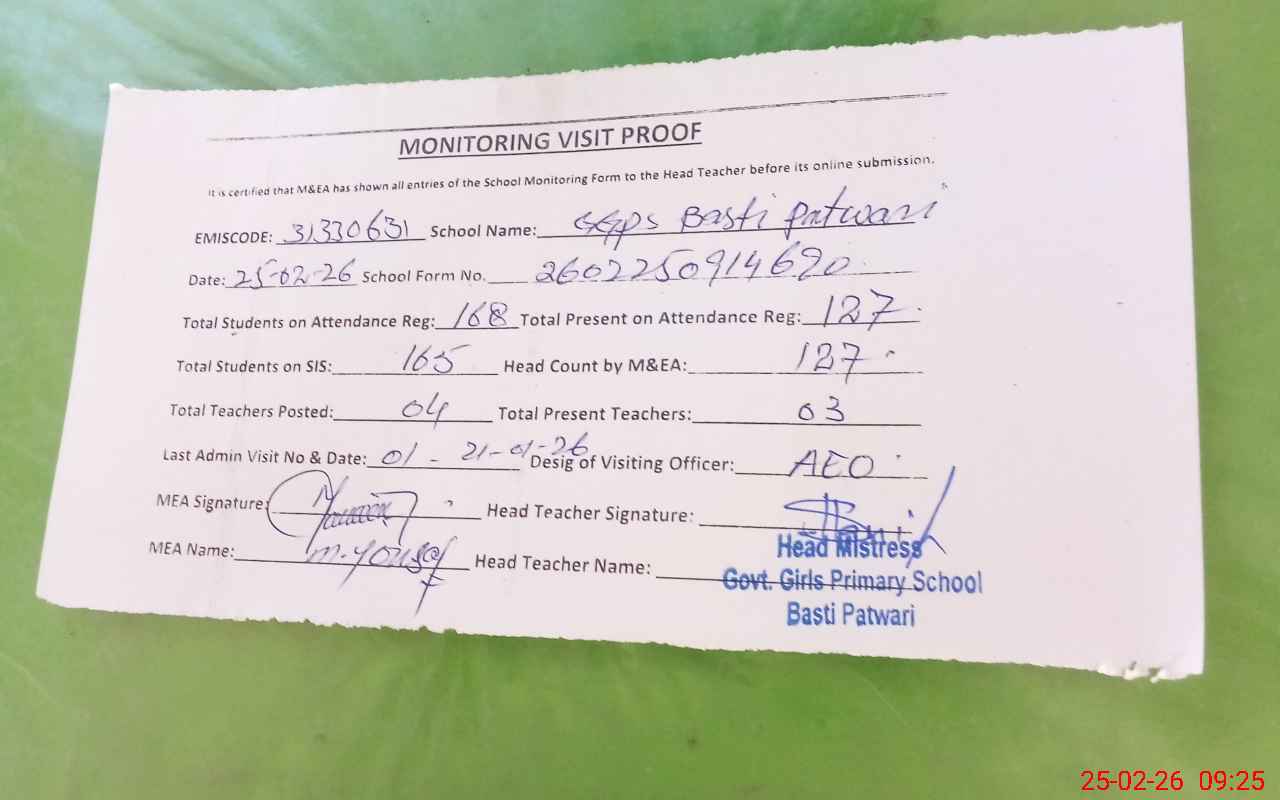 MONITORING VISIT PROOF
It is certified that M&EA has shown all entries of the School Monitoring Form to the Head Teacher before its online submission.
EMISCODE: 31330631 School Name: GGPS Basti Patwari
Date: 25-02-26 School Form No. 2602250914620
Total Students on Attendance Reg: 168 Total Present on Attendance Reg: 127
Total Students on SIS: 165 Head Count by M&EA: 127
Total Teachers Posted: 04 Total Present Teachers: 03
Last Admin Visit No & Date: 01 - 21-01-26 Desig of Visiting Officer: AEO
MEA Signature: Head Teacher Signature:
MEA Name: M. Yousaf Head Teacher Name:
Head Mistress
Govt. Girls Primary School
Basti Patwari
25-02-26 09:25